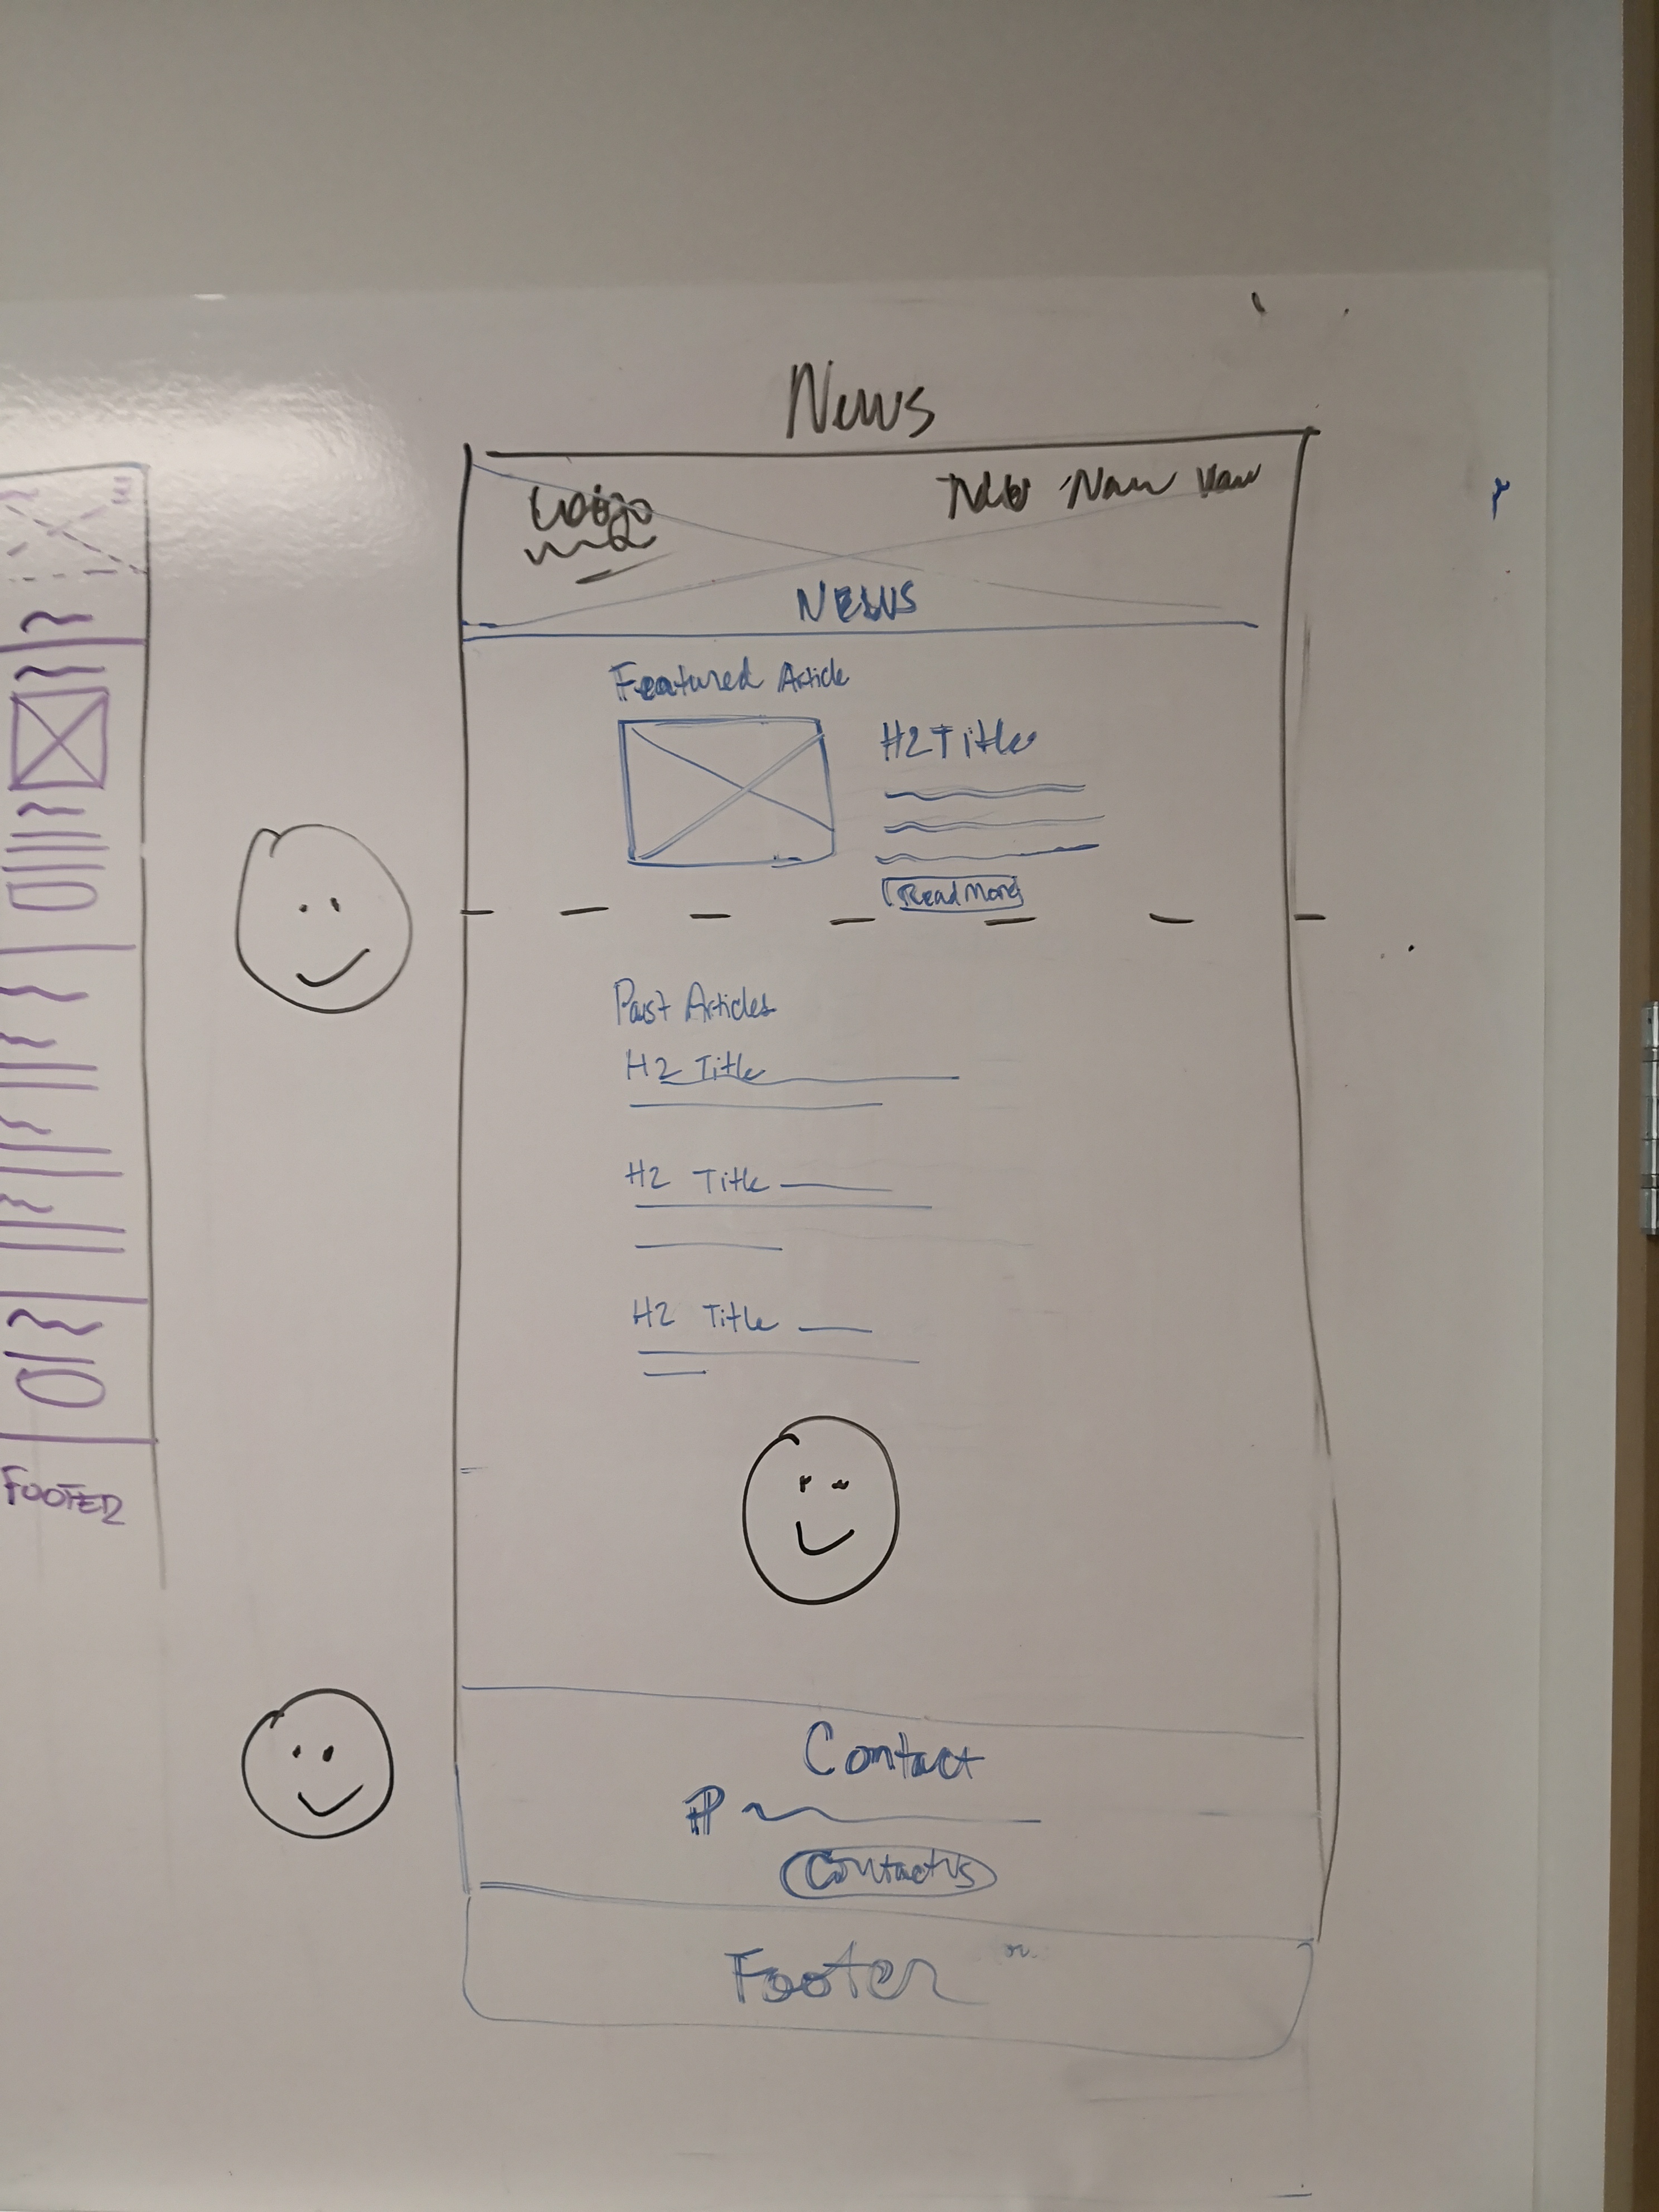 News
NEWS
Featured Article
H2 Title
Read More
Past Articles
H2 Title
H2 Title
H2 Title
Contact
Contact Us
Footer
FOOTER